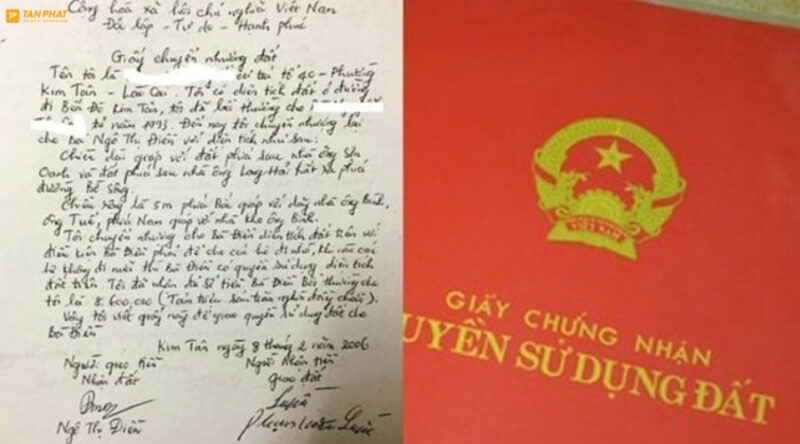 TAN PHAT
Cộng hoà xã hội chủ nghĩa Việt Nam
Độc lập - Tự do - Hạnh phúc
Giấy chuyển nhượng đất
Tên tôi là cư trú tổ 40 - Phường
Kim Tân - Lào Cai. Tôi có diện tích đất ở đường
đi Bến Đá Kim Tân, tôi đã bồi thường cho
từ năm 1995. Đến nay tôi chuyển nhượng lại
cho bà Ngô Thị Điền với diện tích như sau:
Chiều dài giáp với đất phía sau nhà ông Sơn
Oanh và đất phía sau nhà ông Long Hải phía
đường Bờ Sông.
Chiều rộng là 5m phía Bắc giáp với nhà ông Bình,
ông Tuế, phía Nam giáp với nhà kho ông Bình.
Tôi chuyển nhượng cho Bà Điền diện tích đất trên với
điều kiện Bà Điền phải để cho các hộ đi nhờ, khi nào các
hộ không đi nữa thì Bà Điền có quyền sử dụng diện tích
đất trên. Tôi đã nhận đủ số tiền Bà Điền Bồi thường cho
tôi là 8.600.000 (Tám triệu sáu trăm nghìn đồng chẵn).
Vậy tôi viết giấy này để giao quyền sử dụng đất cho
Bà Điền
Kim Tân ngày 8 tháng 2 năm 2006
Người giao tiền Người nhận tiền
Nhận đất Giao đất
Ngô Thị Điền
VIỆT NAM
GIẤY CHỨNG NHẬN
UYỀN SỬ DỤNG ĐẤT